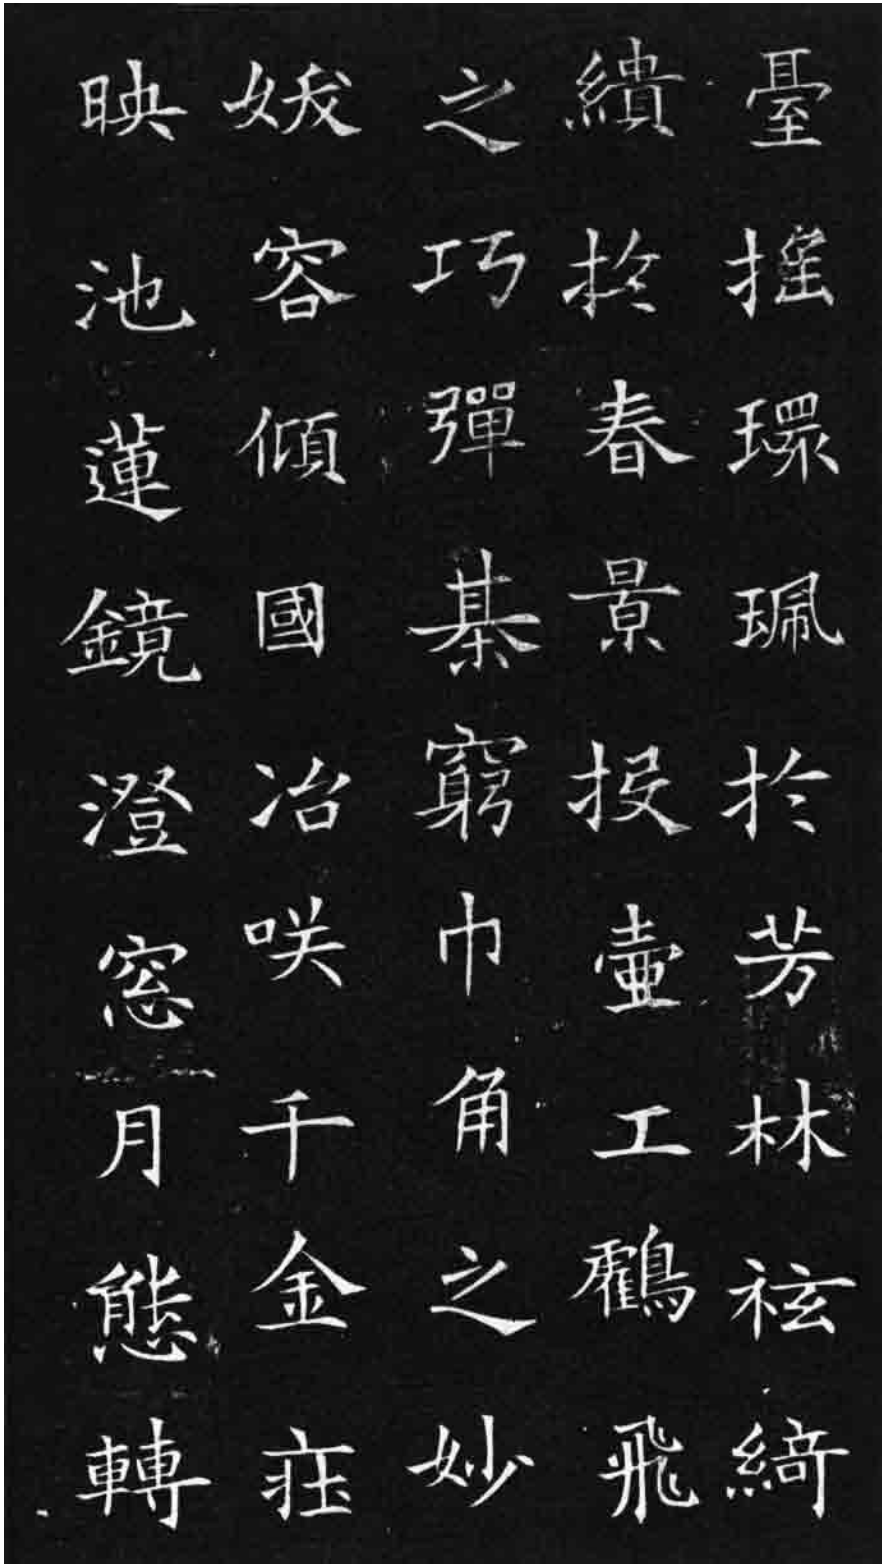 臺搖環珮於芳林袨綺
繢於春景投壺工鶴飛
之巧彈棊窮巾角之妙
妖容傾國冶咲千金莊
映池蓮鏡澄窓月態轉